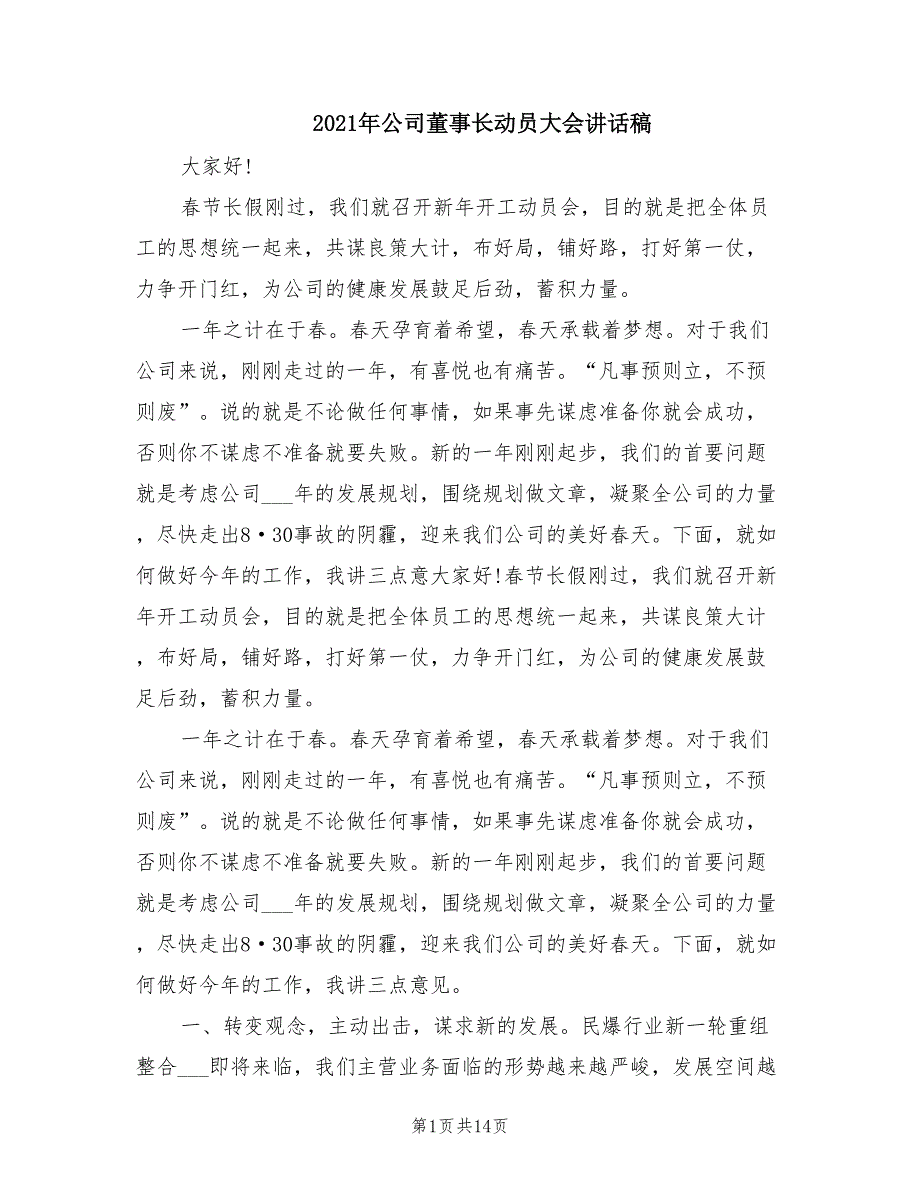 2021年公司董事长动员大会讲话稿
大家好!
春节长假刚过，我们就召开新年开工动员会，目的就是把全体员
工的思想统一起来，共谋良策大计，布好局，铺好路，打好第一仗，
力争开门红，为公司的健康发展鼓足后劲，蓄积力量。
一年之计在于春。春天孕育着希望，春天承载着梦想。对于我们
公司来说，刚刚走过的一年，有喜悦也有痛苦。“凡事预则立，不预
则废”。说的就是不论做任何事情，如果事先谋虑准备你就会成功，
否则你不谋虑不准备就要失败。新的一年刚刚起步，我们的首要问题
就是考虑公司___年的发展规划，围绕规划做文章，凝聚全公司的力量
，尽快走出8·30事故的阴霾，迎来我们公司的美好春天。下面，就如
何做好今年的工作，我讲三点意大家好!春节长假刚过，我们就召开新
年开工动员会，目的就是把全体员工的思想统一起来，共谋良策大计
，布好局，铺好路，打好第一仗，力争开门红，为公司的健康发展鼓
足后劲，蓄积力量。
一年之计在于春。春天孕育着希望，春天承载着梦想。对于我们
公司来说，刚刚走过的一年，有喜悦也有痛苦。“凡事预则立，不预
则废”。说的就是不论做任何事情，如果事先谋虑准备你就会成功，
否则你不谋虑不准备就要失败。新的一年刚刚起步，我们的首要问题
就是考虑公司___年的发展规划，围绕规划做文章，凝聚全公司的力量
，尽快走出8·30事故的阴霾，迎来我们公司的美好春天。下面，就如
何做好今年的工作，我讲三点意见。
一、转变观念，主动出击，谋求新的发展。民爆行业新一轮重组
整合___即将来临，我们主营业务面临的形势越来越严峻，发展空间越
第1页共14页